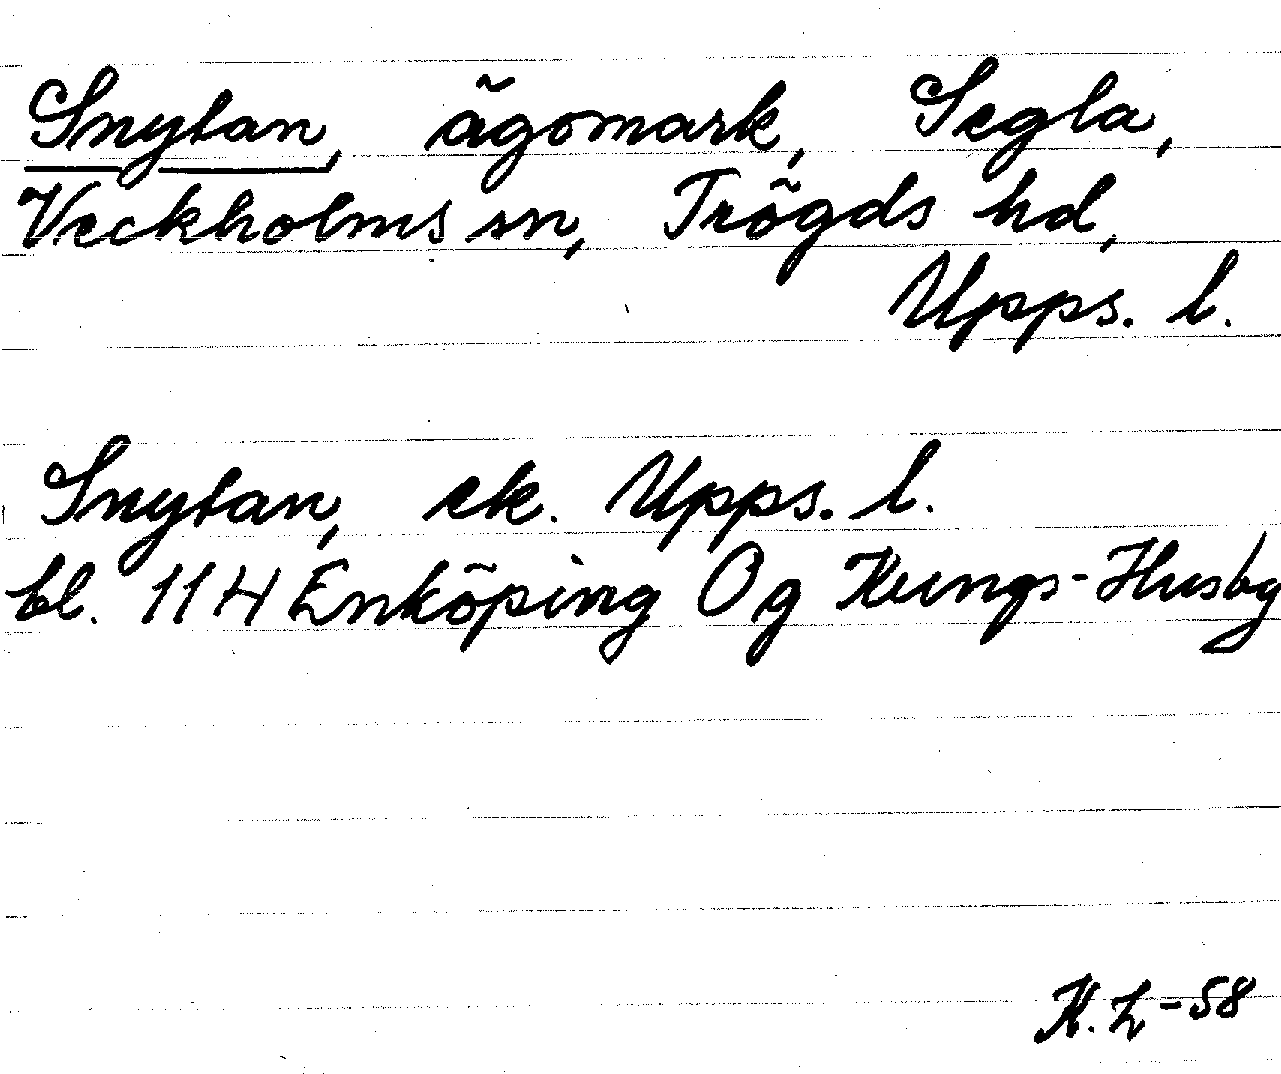 Snytan, ägomark, Segla,
Veckholms sn, Trögds hd,
Upps. l.
Snytan, ek. Upps. l.
bl. 114 Enköping Og Kungs-Husby
K. L-58